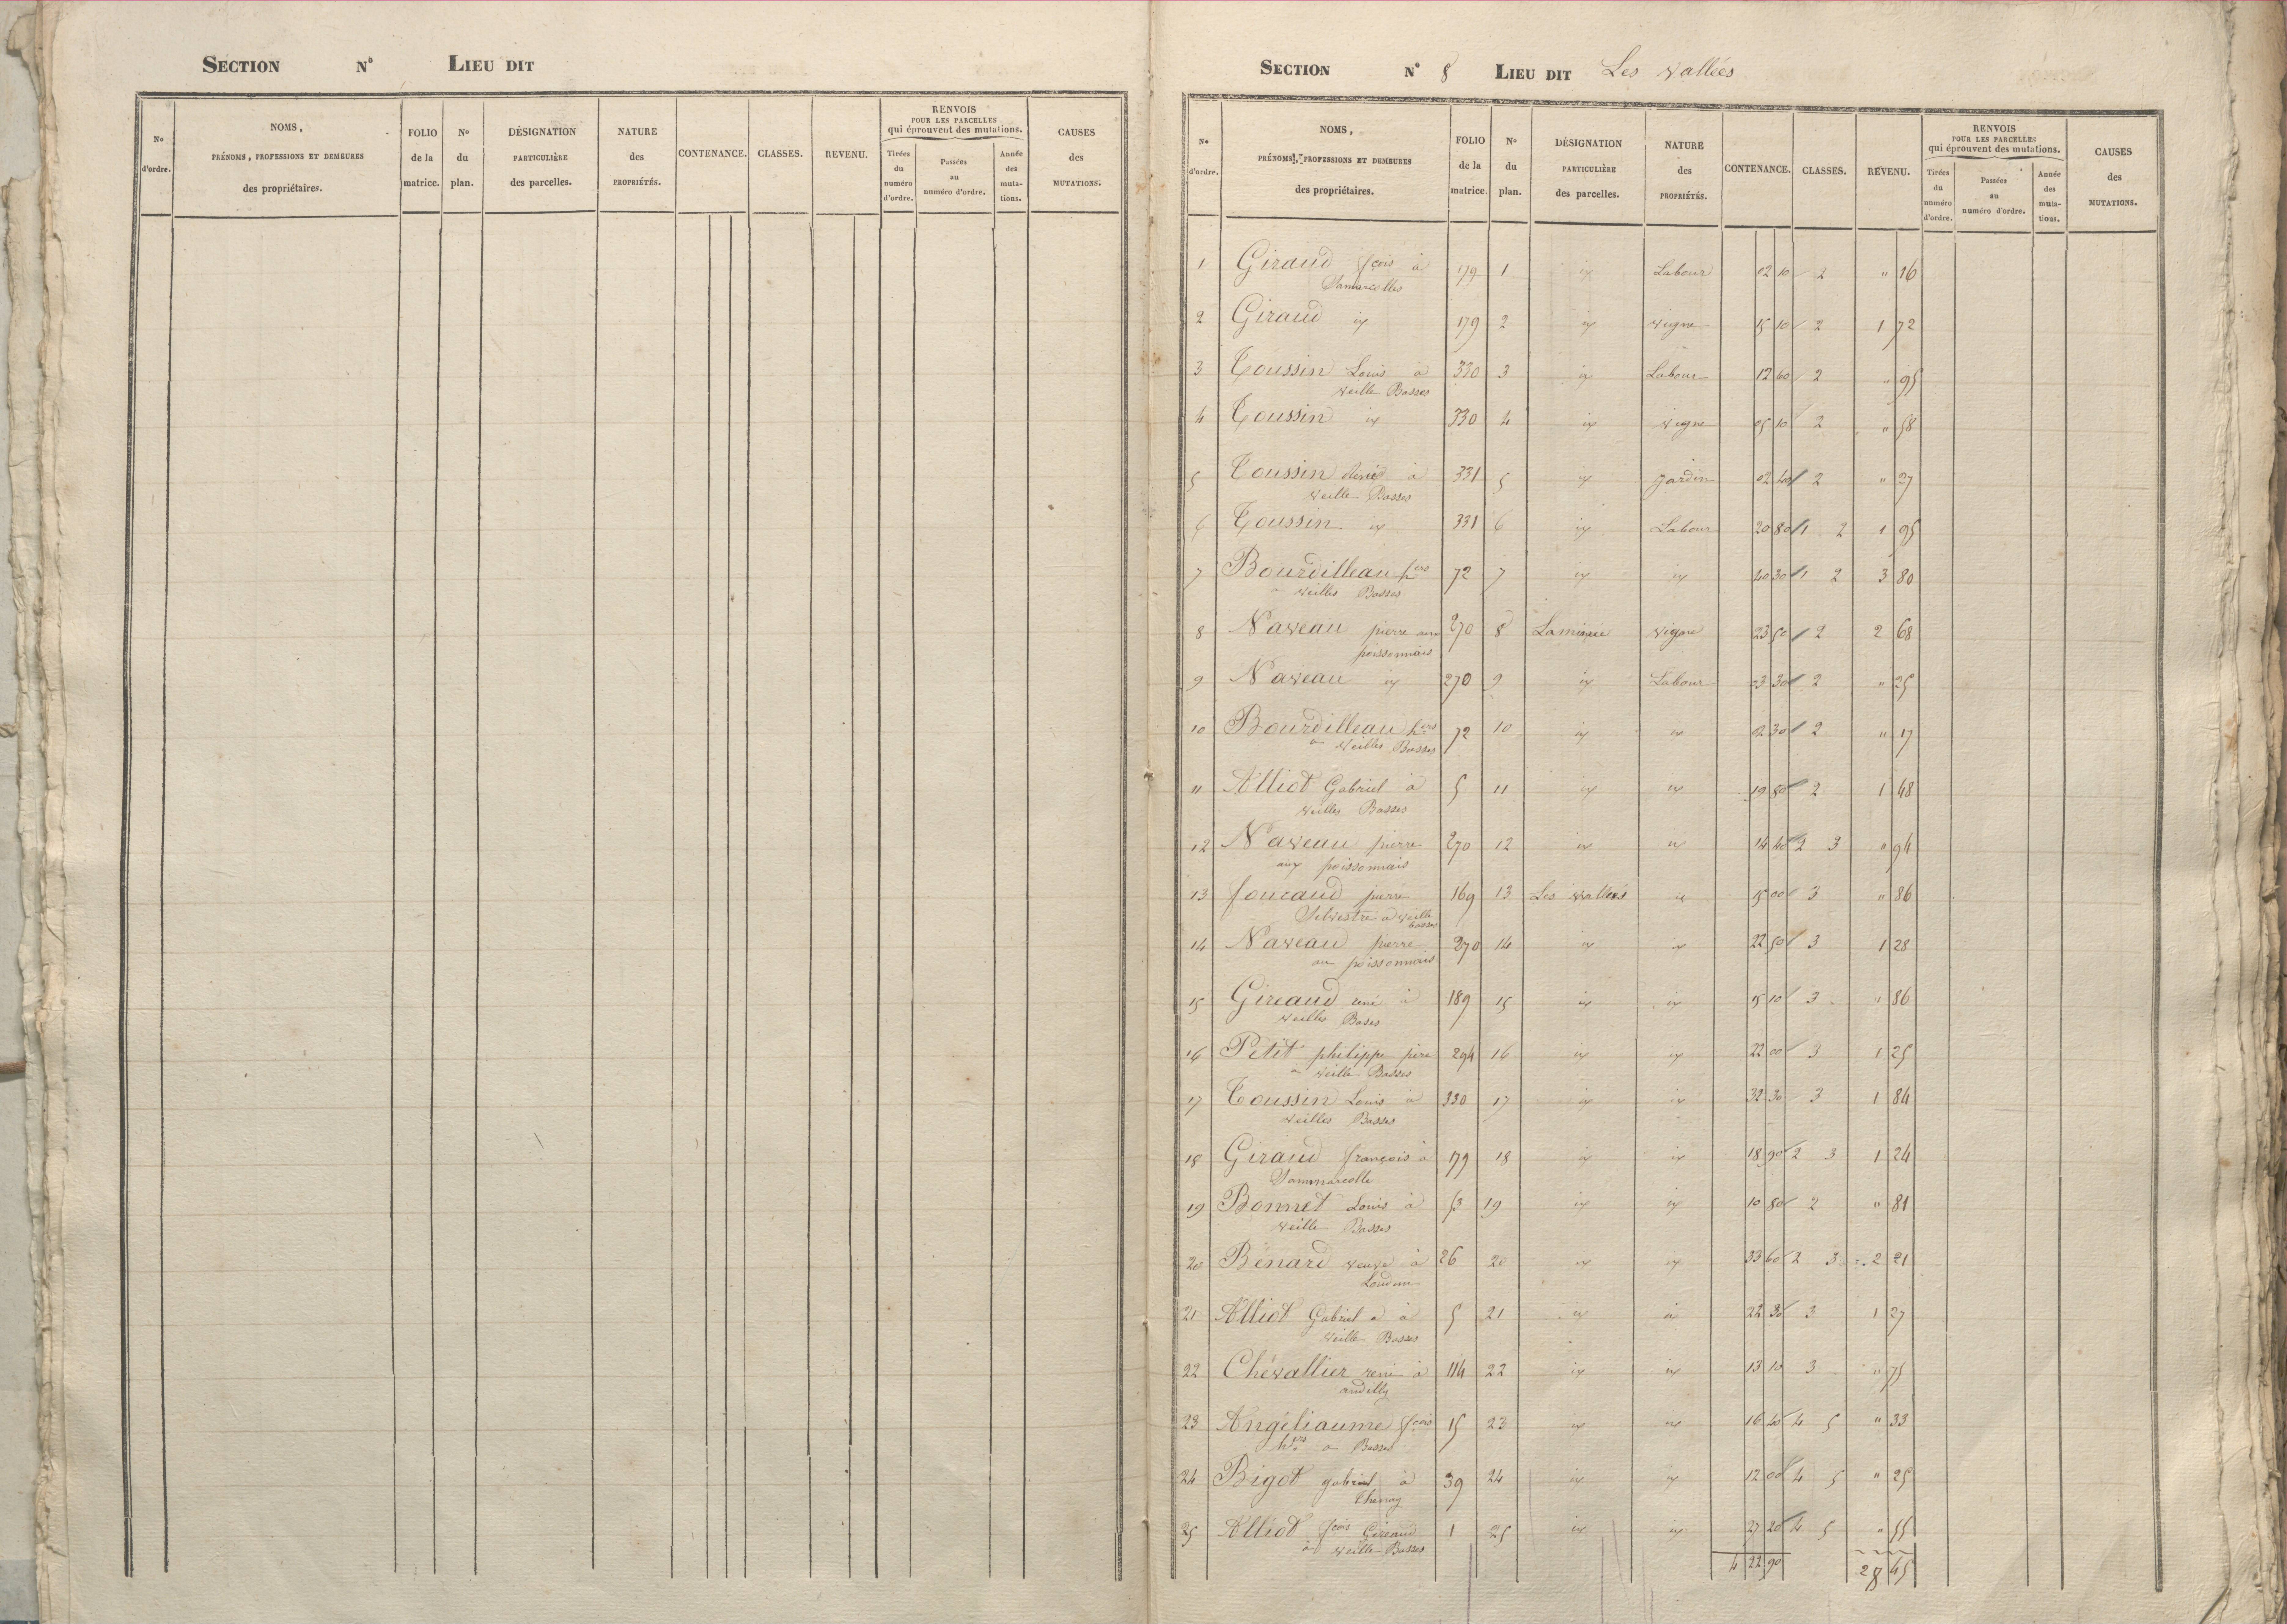 SECTION N° LIEU DIT
N° d'ordre. NOMS, PRÉNOMS, PROFESSIONS ET DEMEURES des propriétaires. FOLIO de la matrice. N° du plan. DÉSIGNATION PARTICULIÈRE des parcelles. NATURE des PROPRIÉTÉS. CONTENANCE. CLASSES. REVENU. RENVOIS POUR LES PARCELLES qui éprouvent des mutations. Tirées du numéro d'ordre. Passées au numéro d'ordre. Année des muta-tions. CAUSES des MUTATIONS.
SECTION N° 8 LIEU DIT Les vallées
N° d'ordre. NOMS, PRÉNOMS, PROFESSIONS ET DEMEURES des propriétaires. FOLIO de la matrice. N° du plan. DÉSIGNATION PARTICULIÈRE des parcelles. NATURE des PROPRIÉTÉS. CONTENANCE. CLASSES. REVENU. RENVOIS POUR LES PARCELLES qui éprouvent des mutations. Tirées du numéro d'ordre. Passées au numéro d'ordre. Année des muta-tions. CAUSES des MUTATIONS.
1 Giraud fçois à 179 1 ix Labour 02 10 2 " 16
Sammarcolles
2 Giraud ix 179 2 ix vigne 15 10 2 1 72
3 Toussin Louis à 330 3 ix Labour 12 60 2 " 95
veille Basses
4 Toussin ix 330 4 ix vigne 05 10 2 " 58
5 Toussin à 331 5 ix jardin 02 40 2 " 27
veille Basses
6 Toussin ix 331 6 ix Labour 20 80 1 2 1 95
7 Bourdilleau hers 72 7 ix ix 40 30 1 2 3 80
à veilles Basses
8 Naveau pierre aux 270 8 vigne 23 50 2 2 68
poissonnais
9 Naveau ix 270 9 ix Labour 03 30 2 " 25
10 Bourdilleau hers 72 10 ix ix 02 30 2 " 17
à veilles Basses
11 Alliot Gabriel à 5 11 ix ix 19 80 2 1 48
veilles Basses
12 Naveau pierre 270 12 ix ix 14 40 2 3 " 94
aux poissonnais
13 foucaud pierre 169 13 Les vallées ix 15 00 3 " 86
Silvestre à veille basses
14 Naveau pierre 270 14 ix ix 22 50 3 1 28
au poissonnais
15 Gireaud rené à 189 15 ix ix 15 10 3 " 86
veilles Bases
16 Petit philippe père 294 16 ix ix 22 00 3 1 25
à veille Basses
17 Toussin Louis à 330 17 ix ix 32 30 3 1 84
veilles Basses
18 Giraud françois à 179 18 ix ix 18 90 2 3 1 24
Sammarcolle
19 Bonnet Louis à 53 19 ix ix 10 80 2 " 81
veille Basses
20 Bénard veuve à 26 20 ix ix 33 60 2 3 2 21
Loudun
21 Alliot Gabriel à 5 21 ix ix 22 30 3 1 27
veille Basses
22 Chévallier rené à 114 22 ix ix 13 10 3 " 75
andilly
23 Angéliaume fçois 15 23 ix ix 16 40 4 5 " 33
hers à Basses
24 Bigot gabriel à 39 24 ix ix 12 00 4 5 " 25
25 Alliot fçois Gireaud 1 25 ix ix 27 20 4 5 " 55
à veille Basses
4 22 90 28 45